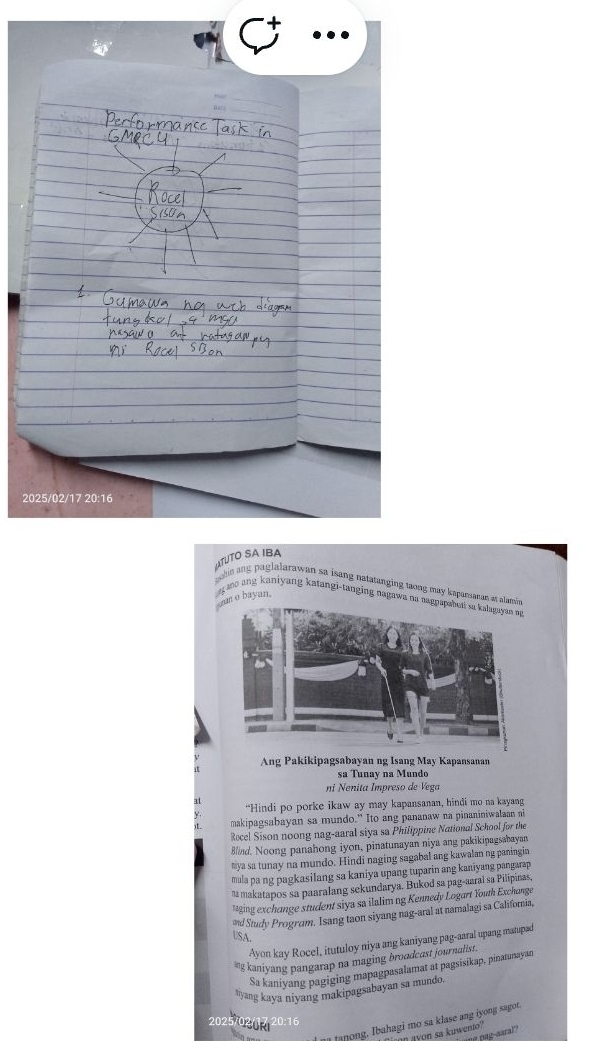 Performance Task in
GMRC 4
Rocel
Sison
1. Gumawa ng web diagram
tungkol sa mga
nagawa at
ni Rocel Sison
2025/02/17 20:16
SA IBA
ang paglalarawan sa isang natatanging taong may kapansanan at alamin
ano ang kaniyang katangi-tanging nagawa na nagpapabuti sa kalagayan ng
o bayan.
Ang Pakikipagsabayan ng Isang May Kapansanan
sa Tunay na Mundo
ni Nenita Impreso de Vega
“Hindi po porke ikaw ay may kapansanan, hindi mo na kayang
makipagsabayan sa mundo.” Ito ang pananaw na pinaniniwalaan ni
Rocel Sison noong nag-aaral siya sa Philippine National School for the
Blind. Noong panahong iyon, pinatunayan niya ang pakikipagsabayan
niya sa tunay na mundo. Hindi naging sagabal ang kawalan ng paningin
mula pa ng pagkasilang sa kaniya upang tuparin ang kaniyang pangarap
na makatapos sa paaralang sekundarya. Bukod sa pag-aaral sa Pilipinas,
naging exchange student siya sa ilalim ng Kennedy Logart Youth Exchange
and Study Program. Isang taon siyang nag-aral at namalagi sa California,
USA.
Ayon kay Rocel, itutuloy niya ang kaniyang pag-aaral upang matupad
ang kaniyang pangarap na maging broadcast journalist.
Sa kaniyang pagiging mapagpasalamat at pagsisikap, pinatunayan
niyang kaya niyang makipagsabayan sa mundo.
2025/02/17 20:16
na tanong. Ibahagi mo sa klase ang iyong sagot.
ayon sa kuwento?
pag-aaral?